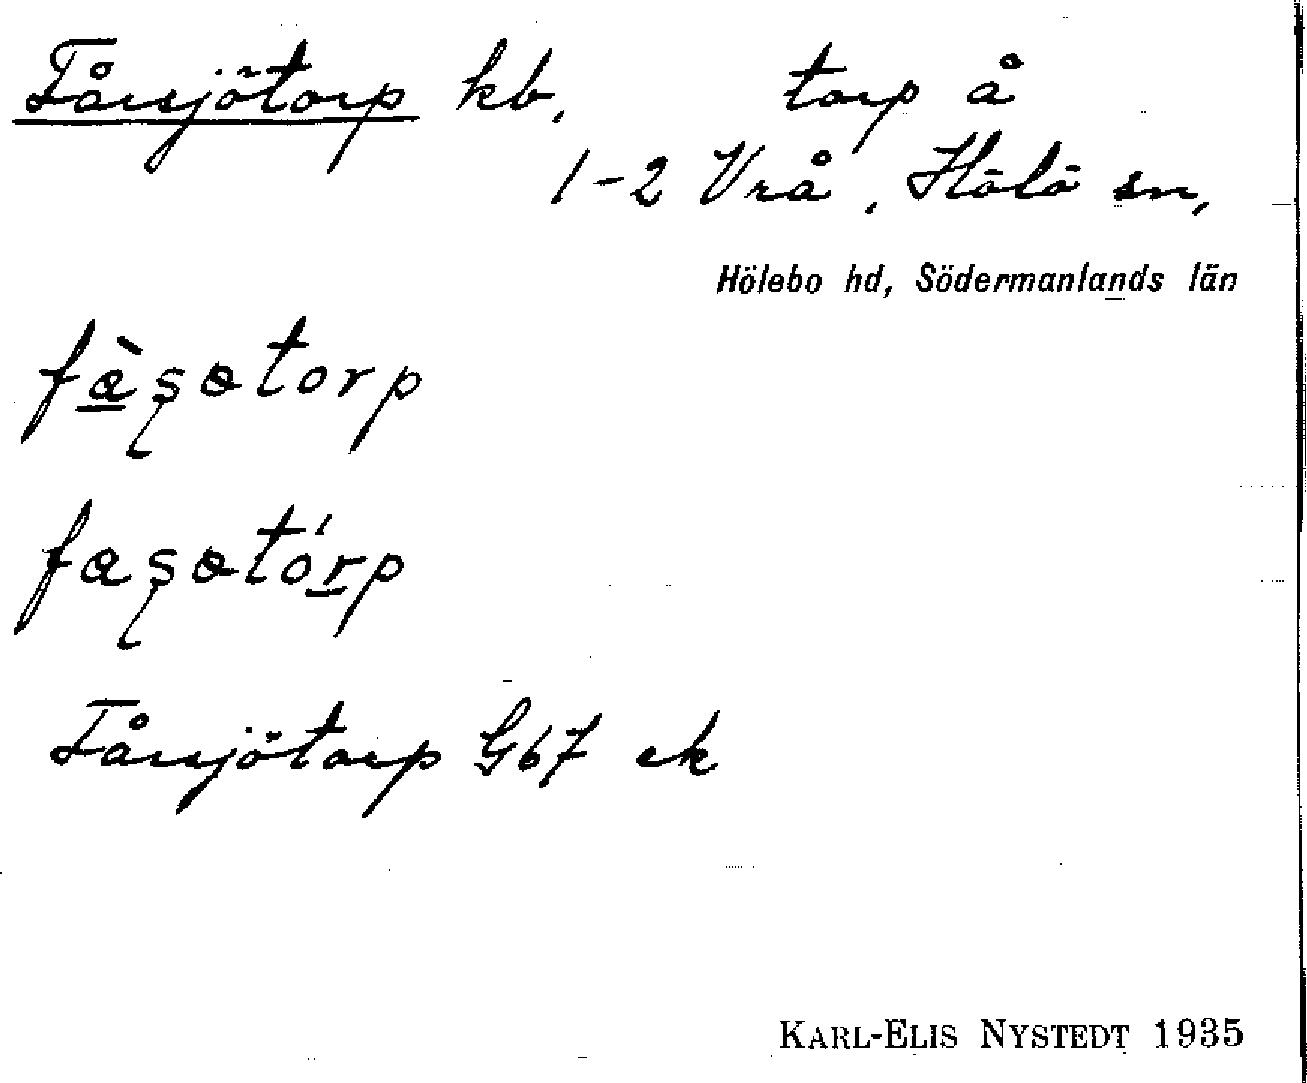 Fårsjötorp kb, torp å
1-2 Vrå, Hölö sn,
Hölebo hd, Södermanlands län
fàʂɵtorp
faʂɵtórp
Fårsjötorp G67 ek
KARL-ELIS NYSTEDT 1935